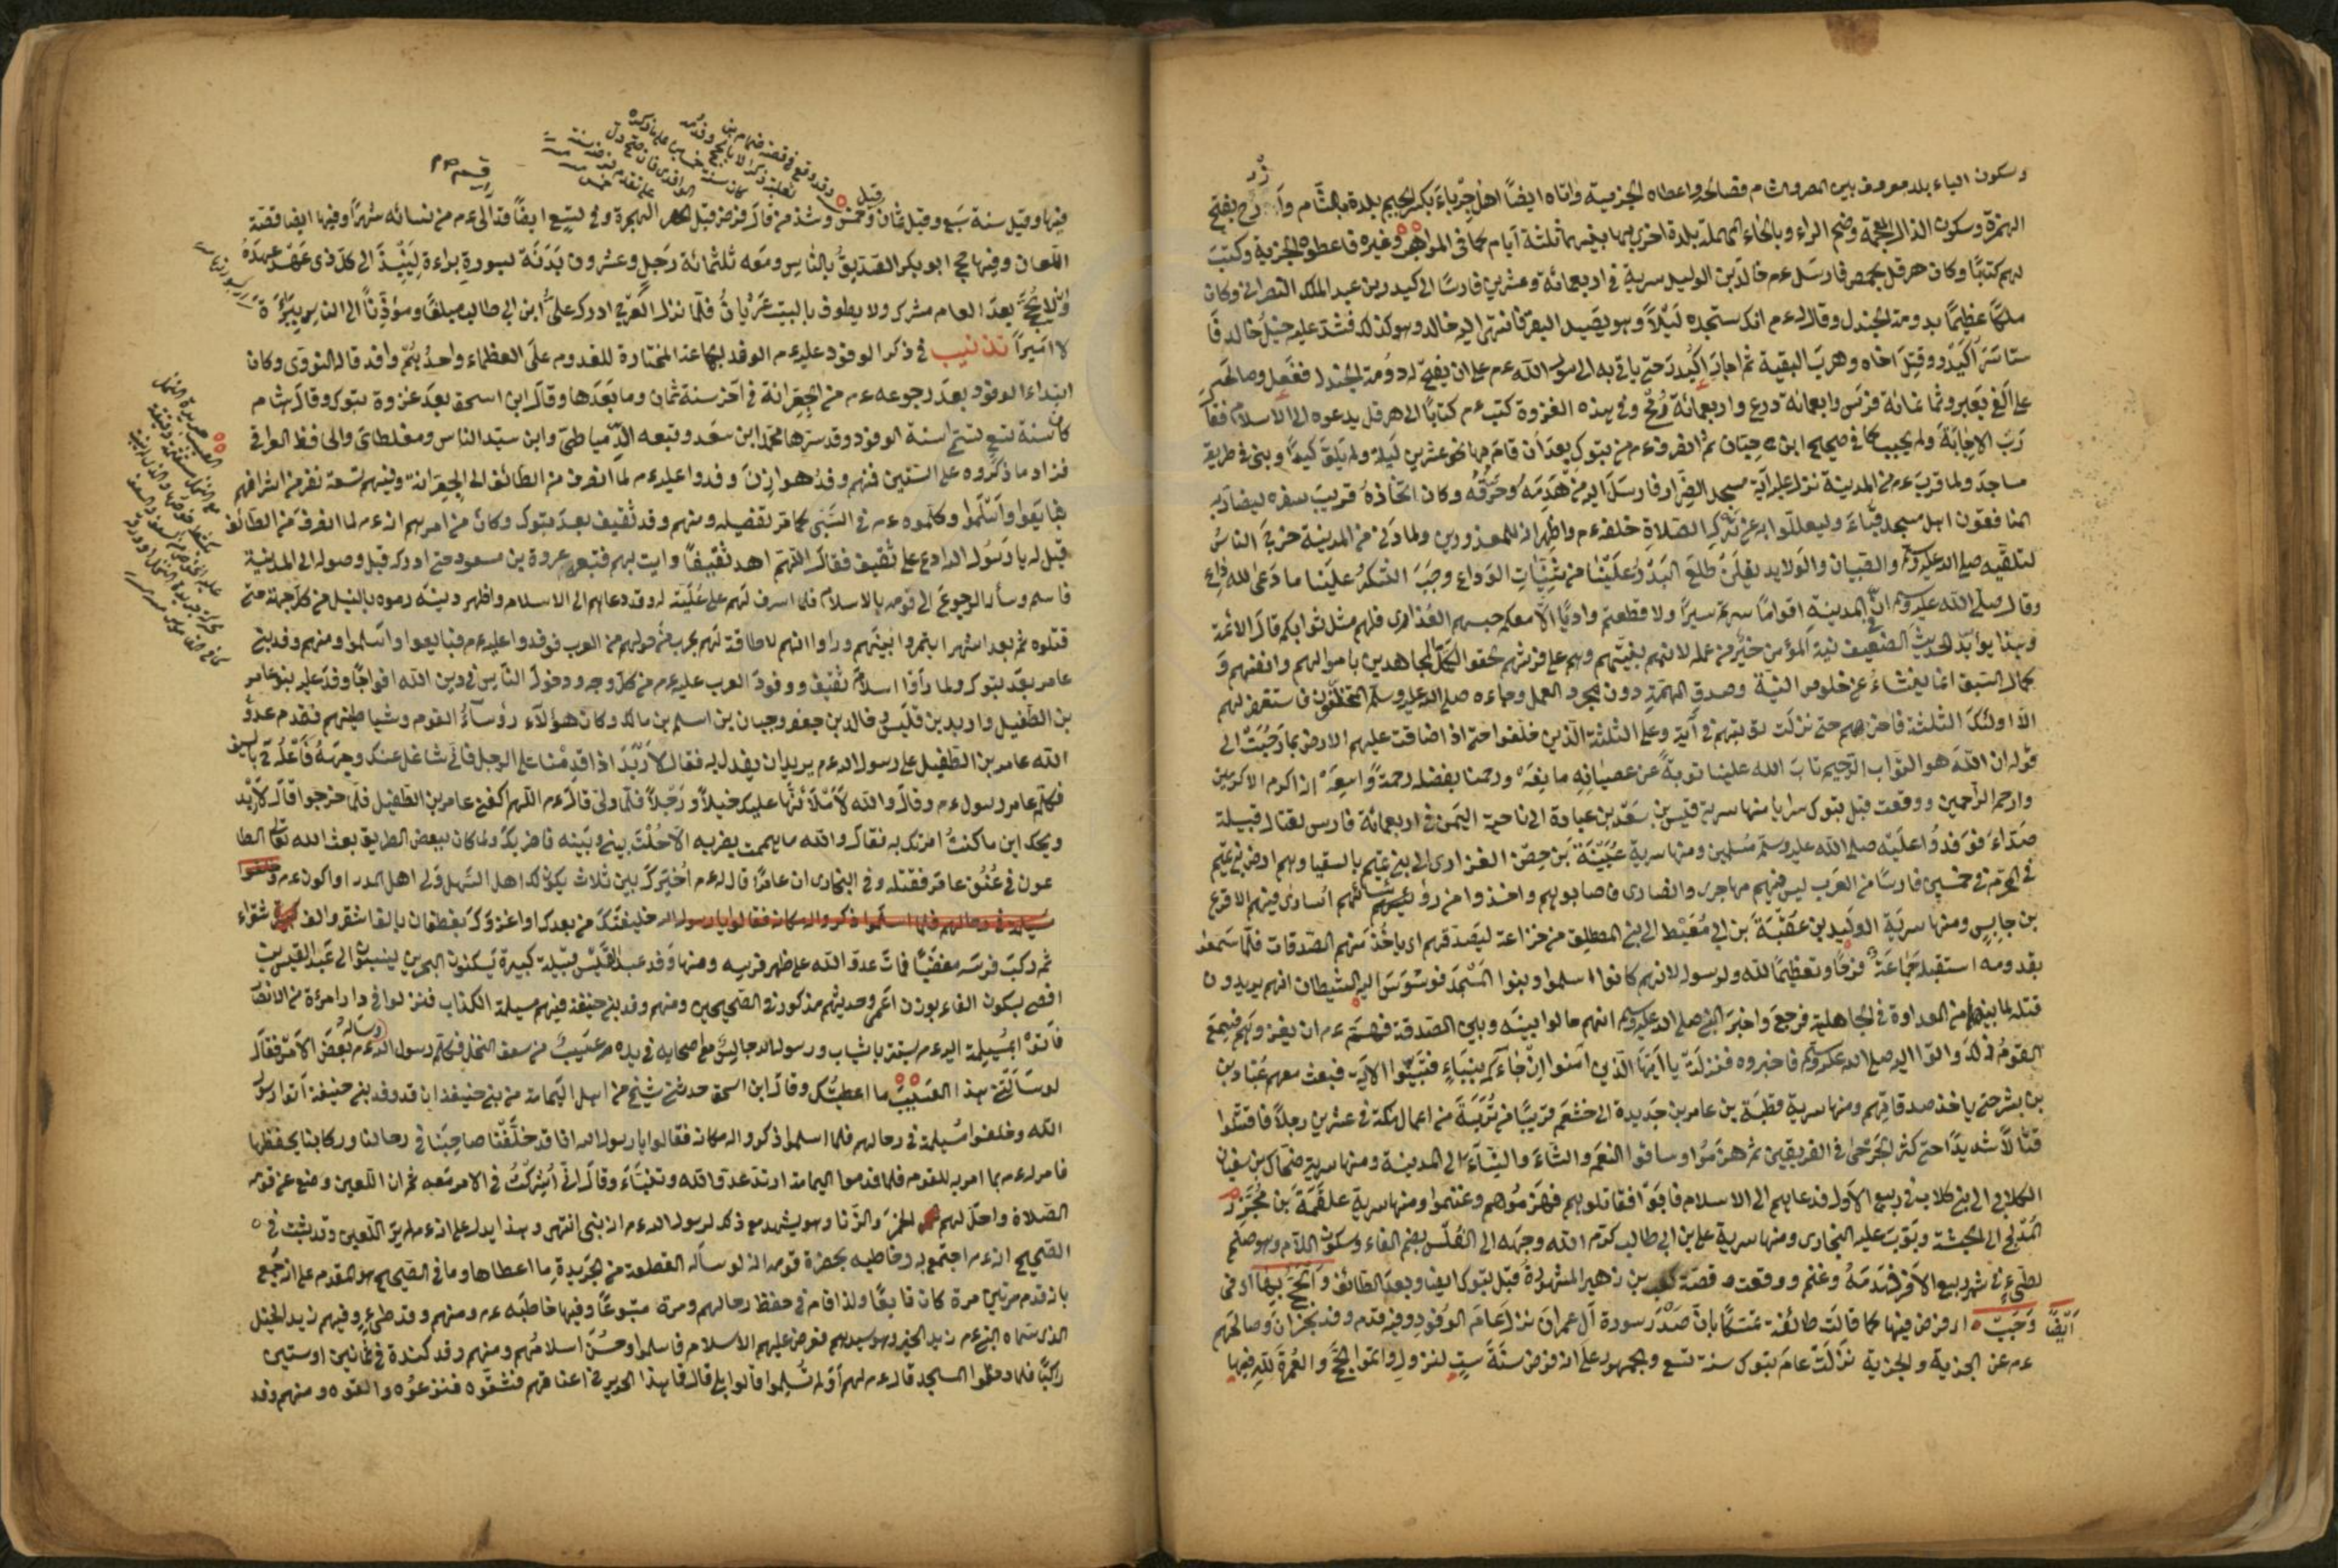 وسكون الباء بلد معروف بين المصر والشام فصالحه واعطاه الجزية واتاه ايضاً اهل جرباء بكسر الجيم بلدة بالشام بفتح
الهمزة وسكون الذال المعجمة وضم الراء وبالحاء المهملة بلدة اخرى بها بينهما ثلثة ايام كما في المواهب وغيره فاعطوه الجزية وكتب
لهم كتابًا وكان هرقل بحمص فارسل عم خالد بن الوليد سرية في اربعمائة وعشرين فارسًا الى اكيدر بن عبد الملك النصراني وكان
ملكًا عظيمًا بدومة الجندل وقال له عم انك ستجده ليلاً وهو يصيد البقر فانتهى اليه خالد وهو كذلك فشد عليه خيل خالد فا
ستاسر اكيدر وقتل اخاه وهرب البقية ثم اجار اكيدر حتى ياتي به الى رسول الله عم على ان يفتح له دومة الجندل ففعل وصالحه
على الفي بعير وثمانمائة فرس واربعمائة درع واربعمائة رمح وفي هذه الغزوة كتب عم كتابًا الى هرقل يدعوه الى الاسلام فقا
رب الاجابة ولم يجب كما في صحيح ابن حبان ثم انصرف عم من تبوك بعد ان قام بها بضع عشرين ليلة ولم يلق كيدًا وبنى في طريقه
مساجد ولما قرب عم من المدينة نزل عليه آية مسجد الضرار فارسل اليه من هدمه وحرقه وكان اتخاذه قريب سفره ليضاد به
المنافقون اهل مسجد قباء وليعللوا به عن ترك الصلاة خلفه عم واظهر انه للمعذورين ولما دنى من المدينة خرج الناس
لتلقيه صلى الله عليه وسلم والصبيان والولايد يقلن طلع البدر علينا من ثنيات الوداع وجب الشكر علينا ما دعى لله داع
وقال صلى الله عليه وسلم ان بالمدينة اقوامًا سرتم سيرًا ولا قطعتم واديًا الا معكم حبسهم العذر اى فلهم مثل ثوابكم قال الائمة
وهذا يؤيد الحديث الضعيف نية المؤمن خير من عمله لانهم بنيتهم وهم على فرشهم لحقوا المجاهدين باموالهم وانفسهم و
كمال السبق انما ينشاء عن خلوص النية وصدق الهمة دون مجرد العمل وجاءه صلى الله عليه وسلم المتخلفون فاستغفر لهم
الا اولئك الثلثة فاخر امرهم حتى نزلت توبتهم في آية وعلى الثلثة الذين خلفوا حتى اذا ضاقت عليهم الارض بما رحبت الى
قوله ان الله هو التواب الرحيم تاب الله علينا توبة عن عصيانه مانعة ورحمنا بفضله رحمة واسعة انه اكرم الاكرمين
وارحم الراحمين ووقعت قبل تبوك سرايا منها سرية قيس بن سعد بن عبادة الى ناحية اليمن في اربعمائة فارس لقتال قبيلة
صداء فوفدوا عليه صلى الله عليه وسلم مسلمين ومنها سرية عيينة بن حصن الفزارى الى بني تميم بالسقيا وهم ارض بني تميم
في المحرم في خمسين فارسًا من العرب ليس فيهم مهاجرى وانصارى فاصابوهم واخذوا من فيهم الاقرع
بن حابس ومنها سرية الوليد بن عقبة بن ابي معيط الى بني المصطلق من خزاعة ليصدقهم اى ياخذ منهم الصدقات فلما سمعوا
بقدومه استقبله جماعة فرحًا وتعظيمًا لله ولرسوله لانهم كانوا اسلموا وبنوا المسجد فوسوس اليه الشيطان انهم يريدون
قتله لما بينهم من العداوة في الجاهلية فرجع واخبر النبي صلى الله عليه وسلم انهم حالوا بينه وبين الصدقة فهم عم ان يغزوهم فسمع
القوم فاتوا اليه صلى الله عليه وسلم فاخبروه فنزلت يا ايها الذين آمنوا ان جاءكم بنباء فتبينوا الآية فبعث معهم عباد بن
بن بشر حتى ياخذ صدقاتهم ومنها سرية قطبة بن عامر بن حديدة الى خثعم قريبًا من تربة من اعمال مكة في عشرين رجلاً فاقتتلوا
قتالاً شديدًا حتى كثر الجرحى في الفريقين ثم هزموا وساقوا النعم والشاء والنساء الى المدينة ومنها سرية ضحاك بن سفيان
الكلابي الى بني كلاب في ربيع الاول فدعاهم الى الاسلام فابوا فقاتلوهم فهزموهم وغنموا ومنها سرية علقمة بن مجزز
المدلجي الى الحبشة وبوب عليه البخارى ومنها سرية علي بن ابي طالب كرم الله وجهه الى الفلس بضم الفاء وسكون اللام وهو صنم
لطيء في شهر ربيع الآخر فهدمه وغنم ووقعت قصة كعب بن زهير المشهورة قبل تبوك ايضا وبعد الطائف والحج فيها اى في
ايضًا وجب اى فرض فيها كما قالت طائفة تمسكًا بان صدر سورة آل عمران نزل عام الوفود وفيه قدم وفد نجران وصالحهم
عم عن الجزية والجزية نزلت عام تبوك سنة تسع والجمهور على انه فرض سنة ست لنزول واتموا الحج والعمرة لله فيها
قبل
فيها وقيل سنة سبع وقيل ثمان وخمس وشذ من قال فرض قبل الهجرة وفي تسع ايضًا قد آلى عم من نسائه شهرًا وفيها ايضا قصة
اللعان وفيها حج ابو بكر الصديق بالناس ومعه ثلثمائة رجل وعشرون بدنة لسورة براءة لينبذ الى كل ذى عهد عهده
وان لا يحج بعد العام مشرك ولا يطوف بالبيت عريان فلما نزل العرج ادرك علي ابن ابي طالب مبلغًا ومؤذنًا الى الناس ببراءة
لا اميرًا تذنيب في ذكر الوفود عليه عم الوفد الجماعة المختارة للقدوم على العظماء واحدهم وافد قاله النووى وكان
ابتداء الوفود بعد رجوعه عم من الجعرانة في آخر سنة ثمان وما بعدها وقال ابن اسحق بعد غزوة تبوك وقال هشام
كان سنة تسع تسمى سنة الوفود وقد سردها محمد ابن سعد وتبعه الدمياطي وابن سيد الناس ومغلطاى والحافظ العراقي
فزاد ما ذكروه على الستين فمنهم وفد هوازن وفدوا عليه عم لما انصرف من الطائف الى الجعرانة وفيهم تسعة نفر من اشرافهم
فبايعوا واسلموا وكلموه عم في السبي كما مر تفصيله ومنهم وفد ثقيف بعد تبوك وكان من امرهم انه عم لما انصرف من الطائف
قيل له يا رسول الله ادع على ثقيف فقال اللهم اهد ثقيفًا وايت بهم فتبعه عروة بن مسعود حتى ادركه قبل وصوله الى المدينة
فاسلم وسأله الرجوع الى قومه بالاسلام فلما اشرف لهم على علية له وقد دعاهم الى الاسلام واظهر دينه رموه بالنبل من كل جهة حتى
قتلوه ثم بعد اشهر ايتمروا بينهم وراوا انهم لا طاقة لهم بحرب من حولهم من العرب فوفدوا عليه عم فبايعوا واسلموا ومنهم وفد بني
عامر بعد تبوك ولما رأوا اسلام ثقيف ووفود العرب عليه عم من كل وجه ودخول الناس في دين الله افواجًا وفد عليه بنو عامر
بن الطفيل واربد بن قيس وخالد بن جعفر وجبان بن اسلم بن مالك وكان هؤلاء رؤساء القوم وشياطينهم فقدم عدو
الله عامر بن الطفيل على رسول الله عم يريد ان يغدر به فقال لاربد اذا قدمنا على الرجل فاني شاغل عنك وجهه فاعله بالسيف
فكلم عامر رسول عم وقال والله لاملأنها عليك خيلاً ورجلاً فلما ولى قال عم اللهم اكفني عامر بن الطفيل فلما خرجوا قال لاربد
ويحك اين ما كنت امرتك به فقال والله ما هممت بضربه الا حلت بيني وبينه فاضربك ولما كان ببعض الطريق بعث الله تعالى الطا
عون في عنق عامر فقتله وفي البخارى ان عامرًا قال له عم اخيرك بين ثلاث يكون لك اهل السهل ولي اهل المدر او اكون
خليفتك من بعدك او اغزوك بغطفان بالف اشقر والف شقراء
ثم ركب فرسه مغضبًا فمات عدو الله على ظهر فرسه ومنها وفد عبد القيس قبيلة كبيرة يسكنون البحرين ينسبون الى عبد القيس بن
افصى بسكون الفاء بوزن اعمى وحديثهم مذكور في الصحيحين ومنهم وفد بني حنيفة فيهم مسيلمة الكذاب فنزلوا في دار امرءة من الانصار
فاتوا بمسيلمة اليه عم يستر بالثياب ورسول الله جالس مع اصحابه في يده عسيب من سعف النخل فكلم رسول الله عم وسأله بعض الامر فقال
لو سألتني هذا العسيب ما اعطيتك وقال ابن اسحق حدثني شيخ من اهل اليمامة من بني حنيفة ان قد وفد بني حنيفة اتوا رسول
الله وخلفوا مسيلمة في رحالهم فلما اسلموا ذكروا له مكانه فقالوا يا رسول الله انا قد خلفنا صاحبنا في رحالنا وركابنا يحفظها
فامر له عم بما امر به للقوم فلما قدموا اليمامة ارتد عدو الله وتنبأ وقال اني اشركت في الامر معه ثم ان اللعين وضع عن قومه
الصلاة واحل لهم الخمر والزنا وهو يشهد مع ذلك لرسول الله عم انه نبي انتهى وهذا يدل على انه عم لم ير اللعين وقد ثبت في
الصحيح انه عم اجتمع به وخاطبه بحضرة قومه انه لو سأله القطعة من الجريدة ما اعطاها وما في الصحيح هو المقدم على انه جمع
بانه قدم مرتين مرة كان تابعًا ولذا قام في حفظ رحالهم ومرة متبوعًا وفيها خاطبه عم ومنهم وفد طيء وفيهم زيد الخيل
الذى سماه النبي عم زيد الخير وهو سيدهم فعرض عليهم الاسلام فاسلموا وحسن اسلامهم ومنهم وفد كندة في ثمانين او ستين
راكبًا فلما دخلوا المسجد قال عم لهم او لم تسلموا قالوا بلى قال فما هذا الحرير في اعناقهم فشقوه فنزعوه والقوه ومنهم وفد